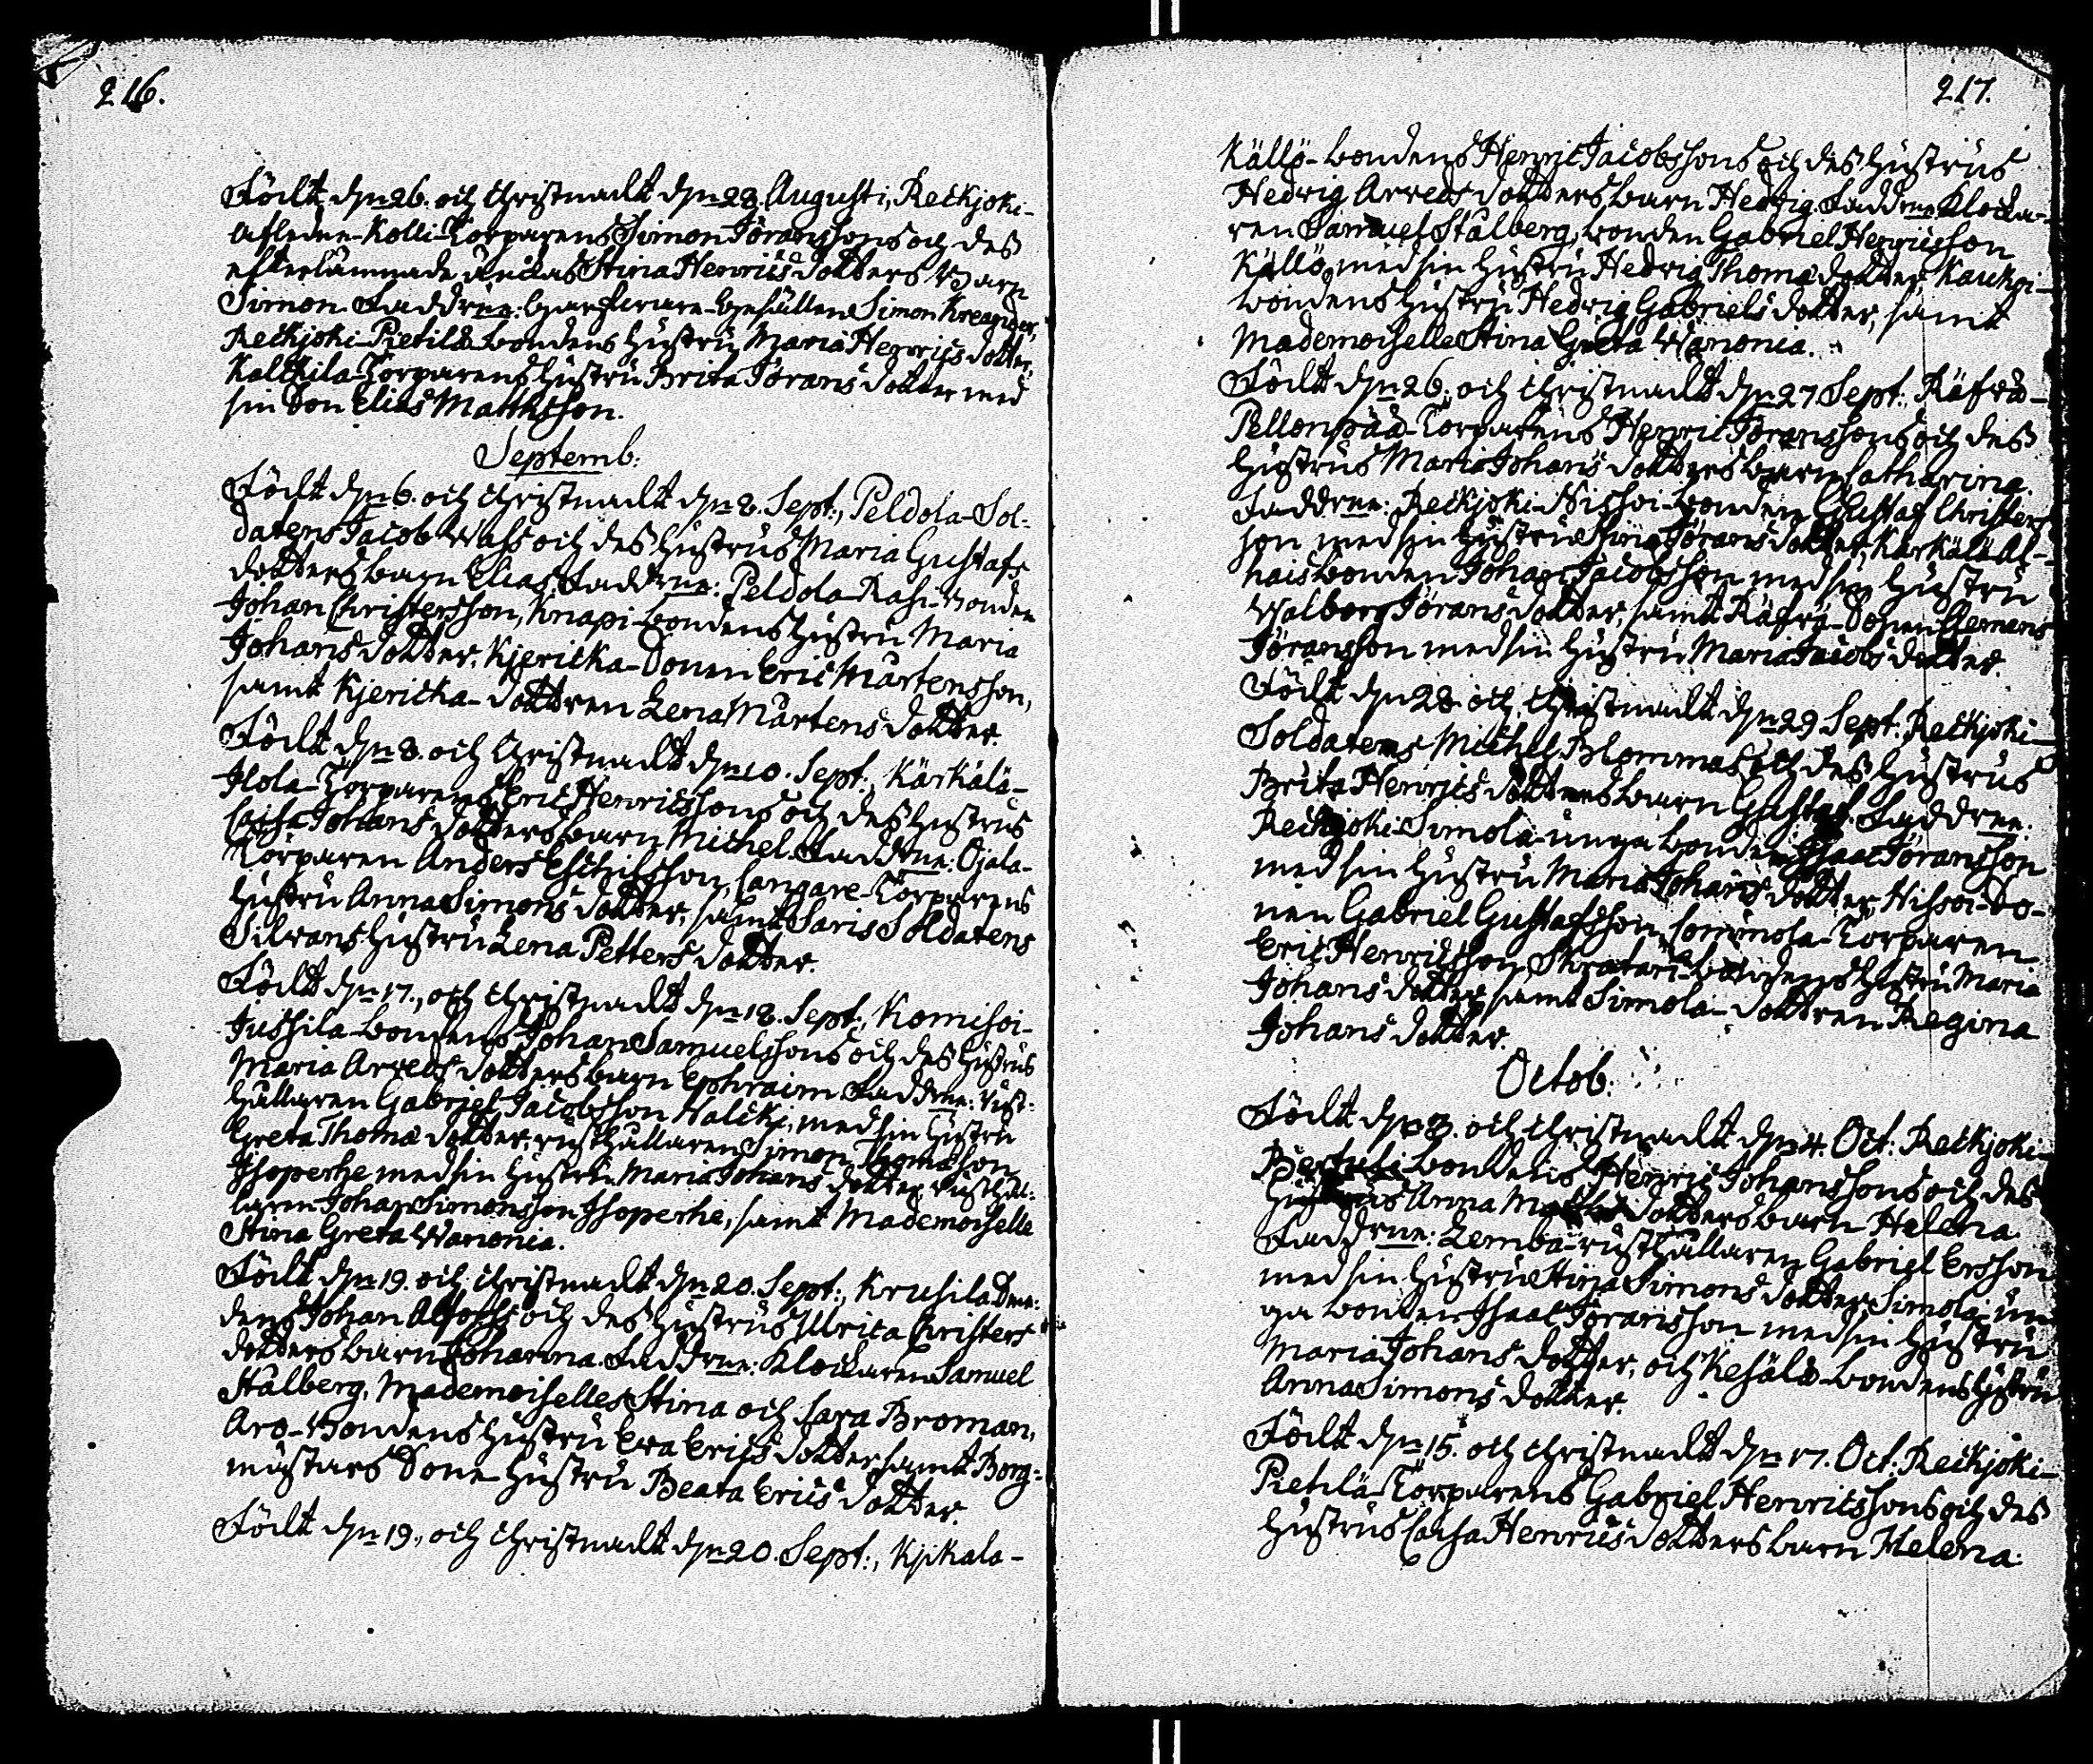 216.
Födt d. 26. och Christnadt d. 28. Augusti, Reckjoki-
Afledne-Kolli-Torparens Simon Jöranssons och des
efterlämnade änckas Stina Henrics dotters Barn
Simon. Faddrne: Garfware-Gesällen Simon Kreander,
Reckjoki-Pietilä-bondens Hustru Maria Henrics dotter,
Kalckila-Torparens Hustru Brita Jörans dotter med
sin Son Elias Matthsson.
Septemb:
Födt d. 6. och Christnadt d. 8. Sept:, Peldola-Sol-
datens Jacob Wass och des Hustrus Maria Gustafs
dotters barn Elias. Faddrne: Peldola-Rasi-Bonden
Johan Christersson, Knapi-bondens Hustru Maria
Johans dotter, Kjericka-Sonen Eric Mårtensson,
samt Kjericka-dottren Lena Mårtens dotter.
Födt d. 8. och Christnadt d. 10. Sept:, Kärkälä-
Ilola-Torparens Eric Henricssons och des Hustrus
Caisa Johans dotters barn Michel. Faddrne: Ojala-
Torparen Anders Eschilsson, Cangare-Torparens
Hustru Anna Simons dotter, samt Saris Soldatens
Silvans Hustru Lena Petters dotter.
Födt d. 17., och Christnadt d. 18. Sept:, Komisoi-
Jussila-bondens Johan Samuelssons och des Hustrus
Maria Arveds dotters barn Ephraim. Faddrne: Rust-
hållaren Gabriel Jacobsson Halcki, med sin Hustru
Greta Thomæ dotter, rusthållaren Simon Thomæson
Isoperhe med sin Hustru Maria Johans dotter, rusthål-
laren Johan Simonsson Isoperhe, samt Mademoiselle
Stina Greta Wanonia.
Födt d. 19. och Christnadt d. 20. Sept:, Krusila
dens Johan och des Hustrus Ulrica Christers
dotters barn Johanna. Faddrne: Klockaren Samuel
Stålberg, Mademoiselles Stina och Sara Broman,
Aro-Bondens Hustru Eva Erics dotter samt Borg-
mästars Sone-Hustru Beata Erics dotter.
Födt d. 19., och Christnadt d. 20. Sept:, Kjikala-
217.
Källö-bondens Henric Jacobssons och des Hustrus
Hedvig Arveds dotters barn Hedvig. Faddrne Klocka-
ren Samuel Stålberg, bonden Gabriel Henricsson
Källö, med sin Hustru Hedvig Thomæ dotter, Kaukoi-
bondens Hustru Hedvig Gabriels dotter, samt
Mademoiselle Stina Greta Wanonia.
Födt d. 26. och Christnadt d. 27 Sept:, Räfvä-
Pellonpää-Torparens Henric Jöranssons och des
Hustrus Maria Johans dotters barn Catharina.
Faddrne: Reckjoki-Nissoi-bonden Gustaf Christers
son med sin Hustru Stina Jörans dotter, Kärkälä Al-
haisbonden Johan Jacobsson med sin Hustru
Walborg Jörans dotter, samt Räfvä-Sonen Clemens
Jöransson med sin Hustru Maria Jacobs dotter.
Födt d. 28. och Christnadt d. 29 Sept: Reckjoki-
Soldatens Michel Blommas och des Hustrus
Brita Henrics dotters barn Gustaf. Faddrne:
Reckjoki-Simola-unga bonden Isaac Jöransson
med sin Hustru Maria Johans dotter, Nissoi-So-
nen Gabriel Gustafsson, Torparen
Eric Henricsson, Skratari-bondens Hustru Maria
Johans dotter, samt Simola-dottren Regina
Johans dotter.
Octob:
Födt d. 3. och Christnadt d. 4. Oct: Reckjoki-
Bertuli bondens Henric Johanssons och des
Hustrus Anna Matths dotters barn Helena
Faddrne: Zemba-rusthållaren Gabriel Ersson
med sin Hustru Stina Simons dotter, Simola-un
ga bonden Isaac Jöransson med sin Hustru
Maria Johans dotter, och Kesälä-bondens Hustru
Anna Simons dotter.
Födt d. 15. och Christnadt d. 17. Oct: Reckjoki-
Pietilä-Torparens Gabriel Henricssons och des
Hustrus Caisa Henrics dotters barn Helena.